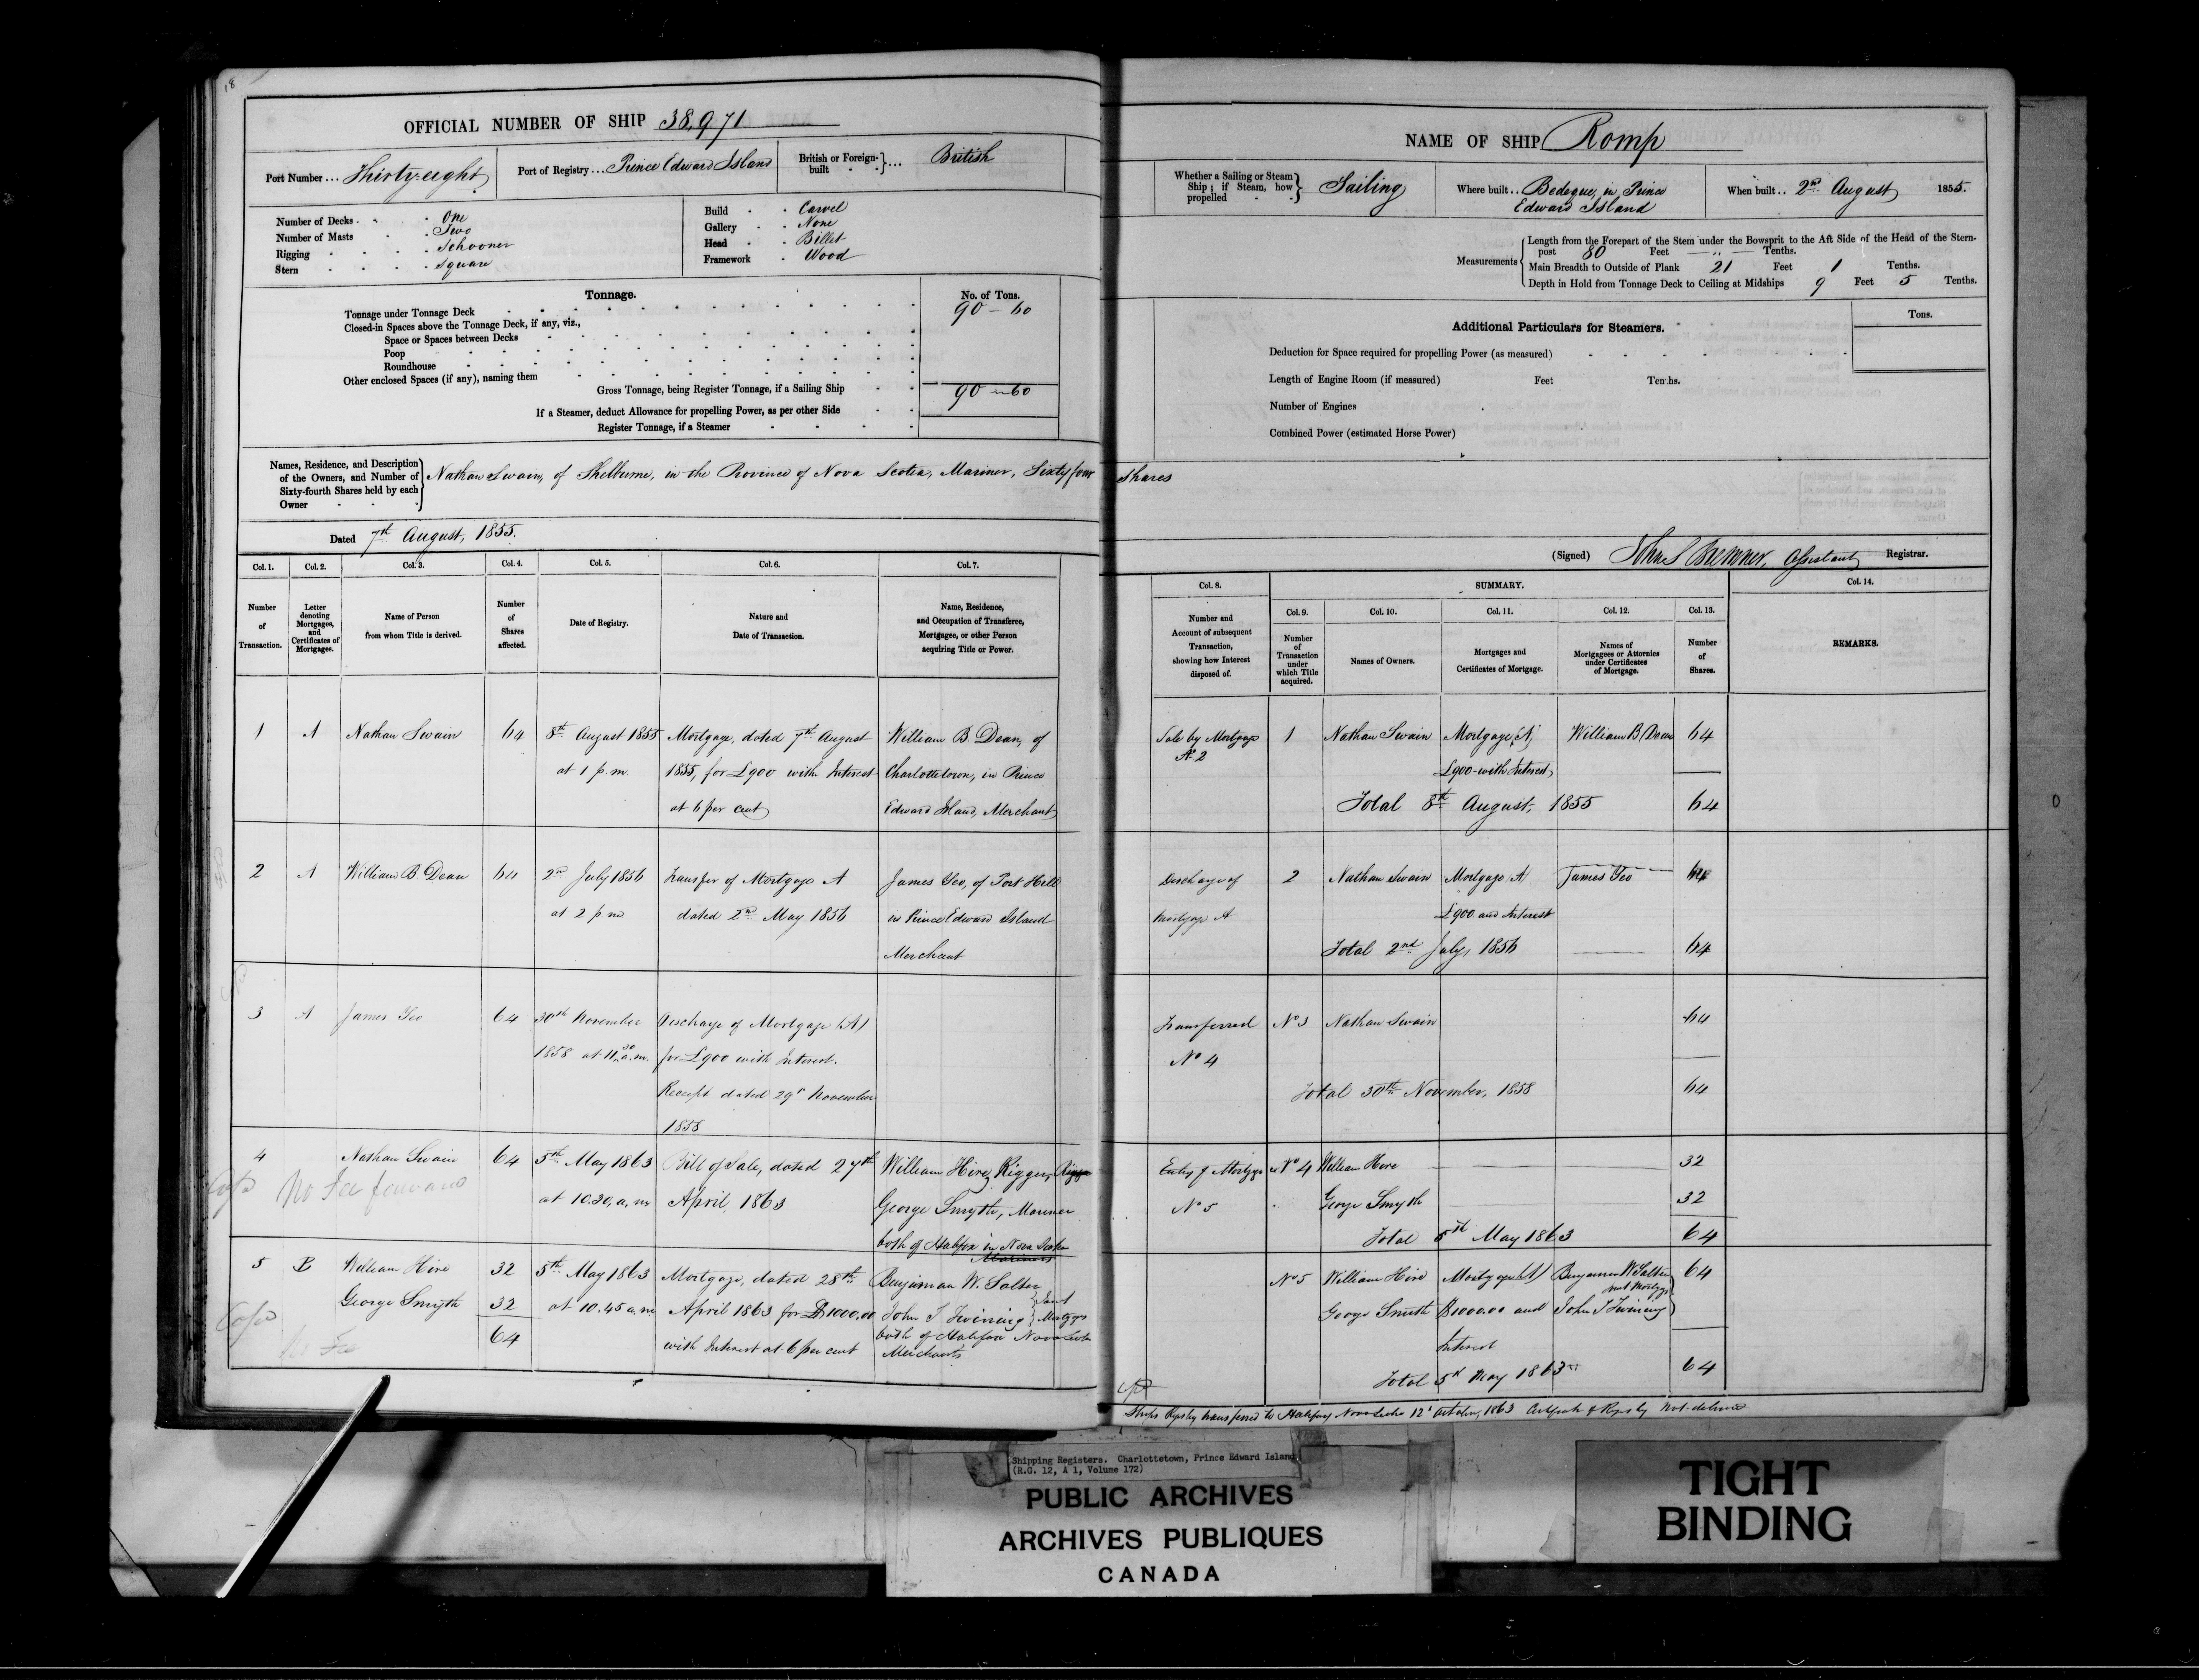 18
OFFICIAL NUMBER OF SHIP 38,971
Port Number ... Thirty-eight
Port of Registry ... Prince Edward Island
British or Foreign-built ... British
Number of Decks One
Number of Masts Two
Rigging Schooner
Stern Square
Build Carvel
Gallery None
Head Billet
Framework Wood
Tonnage.
No. of Tons.
Tonnage under Tonnage Deck 90 - 60
Closed-in Spaces above the Tonnage Deck, if any, viz.,
Space or Spaces between Decks
Poop
Roundhouse
Other enclosed Spaces (if any), naming them
Gross Tonnage, being Register Tonnage, if a Sailing Ship 90 - 60
If a Steamer, deduct Allowance for propelling Power, as per other Side
Register Tonnage, if a Steamer
Names, Residence, and Description
of the Owners, and Number of
Sixty-fourth Shares held by each
Owner
Nathan Swain, of Shelburne, in the Province of Nova Scotia, Mariner, Sixty four Shares
Dated 7th August, 1855.
Col. 1. Col. 2. Col. 3. Col. 4. Col. 5. Col. 6. Col. 7.
Number of Transaction.
Letter denoting Mortgages, and Certificates of Mortgages.
Name of Person from whom Title is derived.
Number of Shares affected.
Date of Registry.
Nature and Date of Transaction.
Name, Residence, and Occupation of Transferee, Mortgagee, or other Person acquiring Title or Power.
1 A Nathan Swain 64 8th August 1855 Mortgage, dated 7th August William B. Dean, of
at 1 p.m. 1855, for £900 with Interest Charlottetown, in Prince
at 6 per cent Edward Island, Merchant
2 A William B Dean 64 2nd July 1856 Transfer of Mortgage A James Yeo, of Port Hill
at 2 p.m dated 2nd May 1856 in Prince Edward Island
Merchant
3 A James Yeo 64 30th November Discharge of Mortgage (A)
1858 at 11.30 a.m. for £900 with Interest.
Receipt dated 29th November
1858
4 Nathan Swain 64 5th May 1863 Bill of Sale, dated 27th William Hire, Rigger,
No Fee
at 10.30, a, m April 1863 George Smyth, Mariner
both of Halifax in Nova Scotia
5 B William Hire 32 5th May 1863 Mortgage, dated 28th Benjiman W. Salter
George Smyth 32 at 10.45 a.m April 1863 for $1000.00 John T Twining Joint Mortgees
64 with Interest at 6 per cent both of Halifax Nova Scotia
Merchants
No Fee
NAME OF SHIP Romp
Whether a Sailing or Steam Ship; if Steam, how propelled Sailing
Where built .. Bedeque, in Prince
Edward Island
When built .. 2nd August 1855.
Measurements
Length from the Forepart of the Stem under the Bowsprit to the Aft Side of the Head of the Stern-
post 80 Feet — „ — Tenths.
Main Breadth to Outside of Plank 21 Feet 1 Tenths.
Depth in Hold from Tonnage Deck to Ceiling at Midships 9 Feet 5 Tenths.
Additional Particulars for Steamers.
Tons.
Deduction for Space required for propelling Power (as measured)
Length of Engine Room (if measured) Feet Tenths.
Number of Engines
Combined Power (estimated Horse Power)
(Signed) John S Bremner, Assistant Registrar.
Col. 8. SUMMARY. Col. 14.
Col. 9. Col. 10. Col. 11. Col. 12. Col. 13.
Number and Account of subsequent Transaction, showing how Interest disposed of.
Number of Transaction under which Title acquired.
Names of Owners.
Mortgages and Certificates of Mortgage.
Names of Mortgagees or Attornies under Certificates of Mortgage.
Number of Shares.
REMARKS.
Sale by Mortgage 1 Nathan Swain Mortgage, A, William B Dean 64
A. 2 £900 with Interest
Total 8th August, 1855 64
Discharge of 2 Nathan Swain Mortgage A James Yeo 64
Mortgage A £900 and Interest
Total 2nd July, 1856 64
Transferred No 3 Nathan Swain 64
No 4
Total 30th November, 1858 64
Entry of Mortgage No 4 William Hire 32
No 5 George Smyth 32
Total 5th May 1863 64
No 5 William Hire Mortgage (A) Benjamin W Salter 64
George Smith $1000.00 and John T Twining
Interest
Total 5th May 1863 64
Ships Registry transferred to Halifax Nova Scotia 12th October, 1863 Certificate of Registry not delivered
Shipping Registers. Charlottetown, Prince Edward Island
(R.G. 12, A 1, Volume 172)
PUBLIC ARCHIVES
ARCHIVES PUBLIQUES
CANADA
TIGHT
BINDING